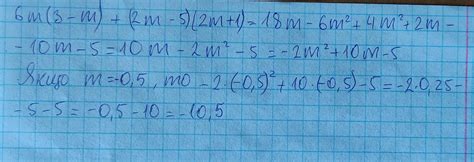 6m(3-m) + (2m-5)(2m+1) = 18m - 6m² + 4m² + 2m -
- 10m - 5 = 10m - 2m² - 5 = -2m² + 10m - 5
Якщо m = -0,5, то -2·(-0,5)² + 10·(-0,5) - 5 = -2·0,25 -
- 5 - 5 = -0,5 - 10 = -10,5